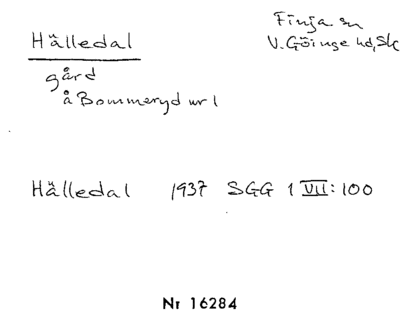 Hälledal
Finja sn
V. Göinge hd, Sk
gård
å Bommeryd nr 1
Hälledal 1937 SGG 1 VII: 100
Nr 16284